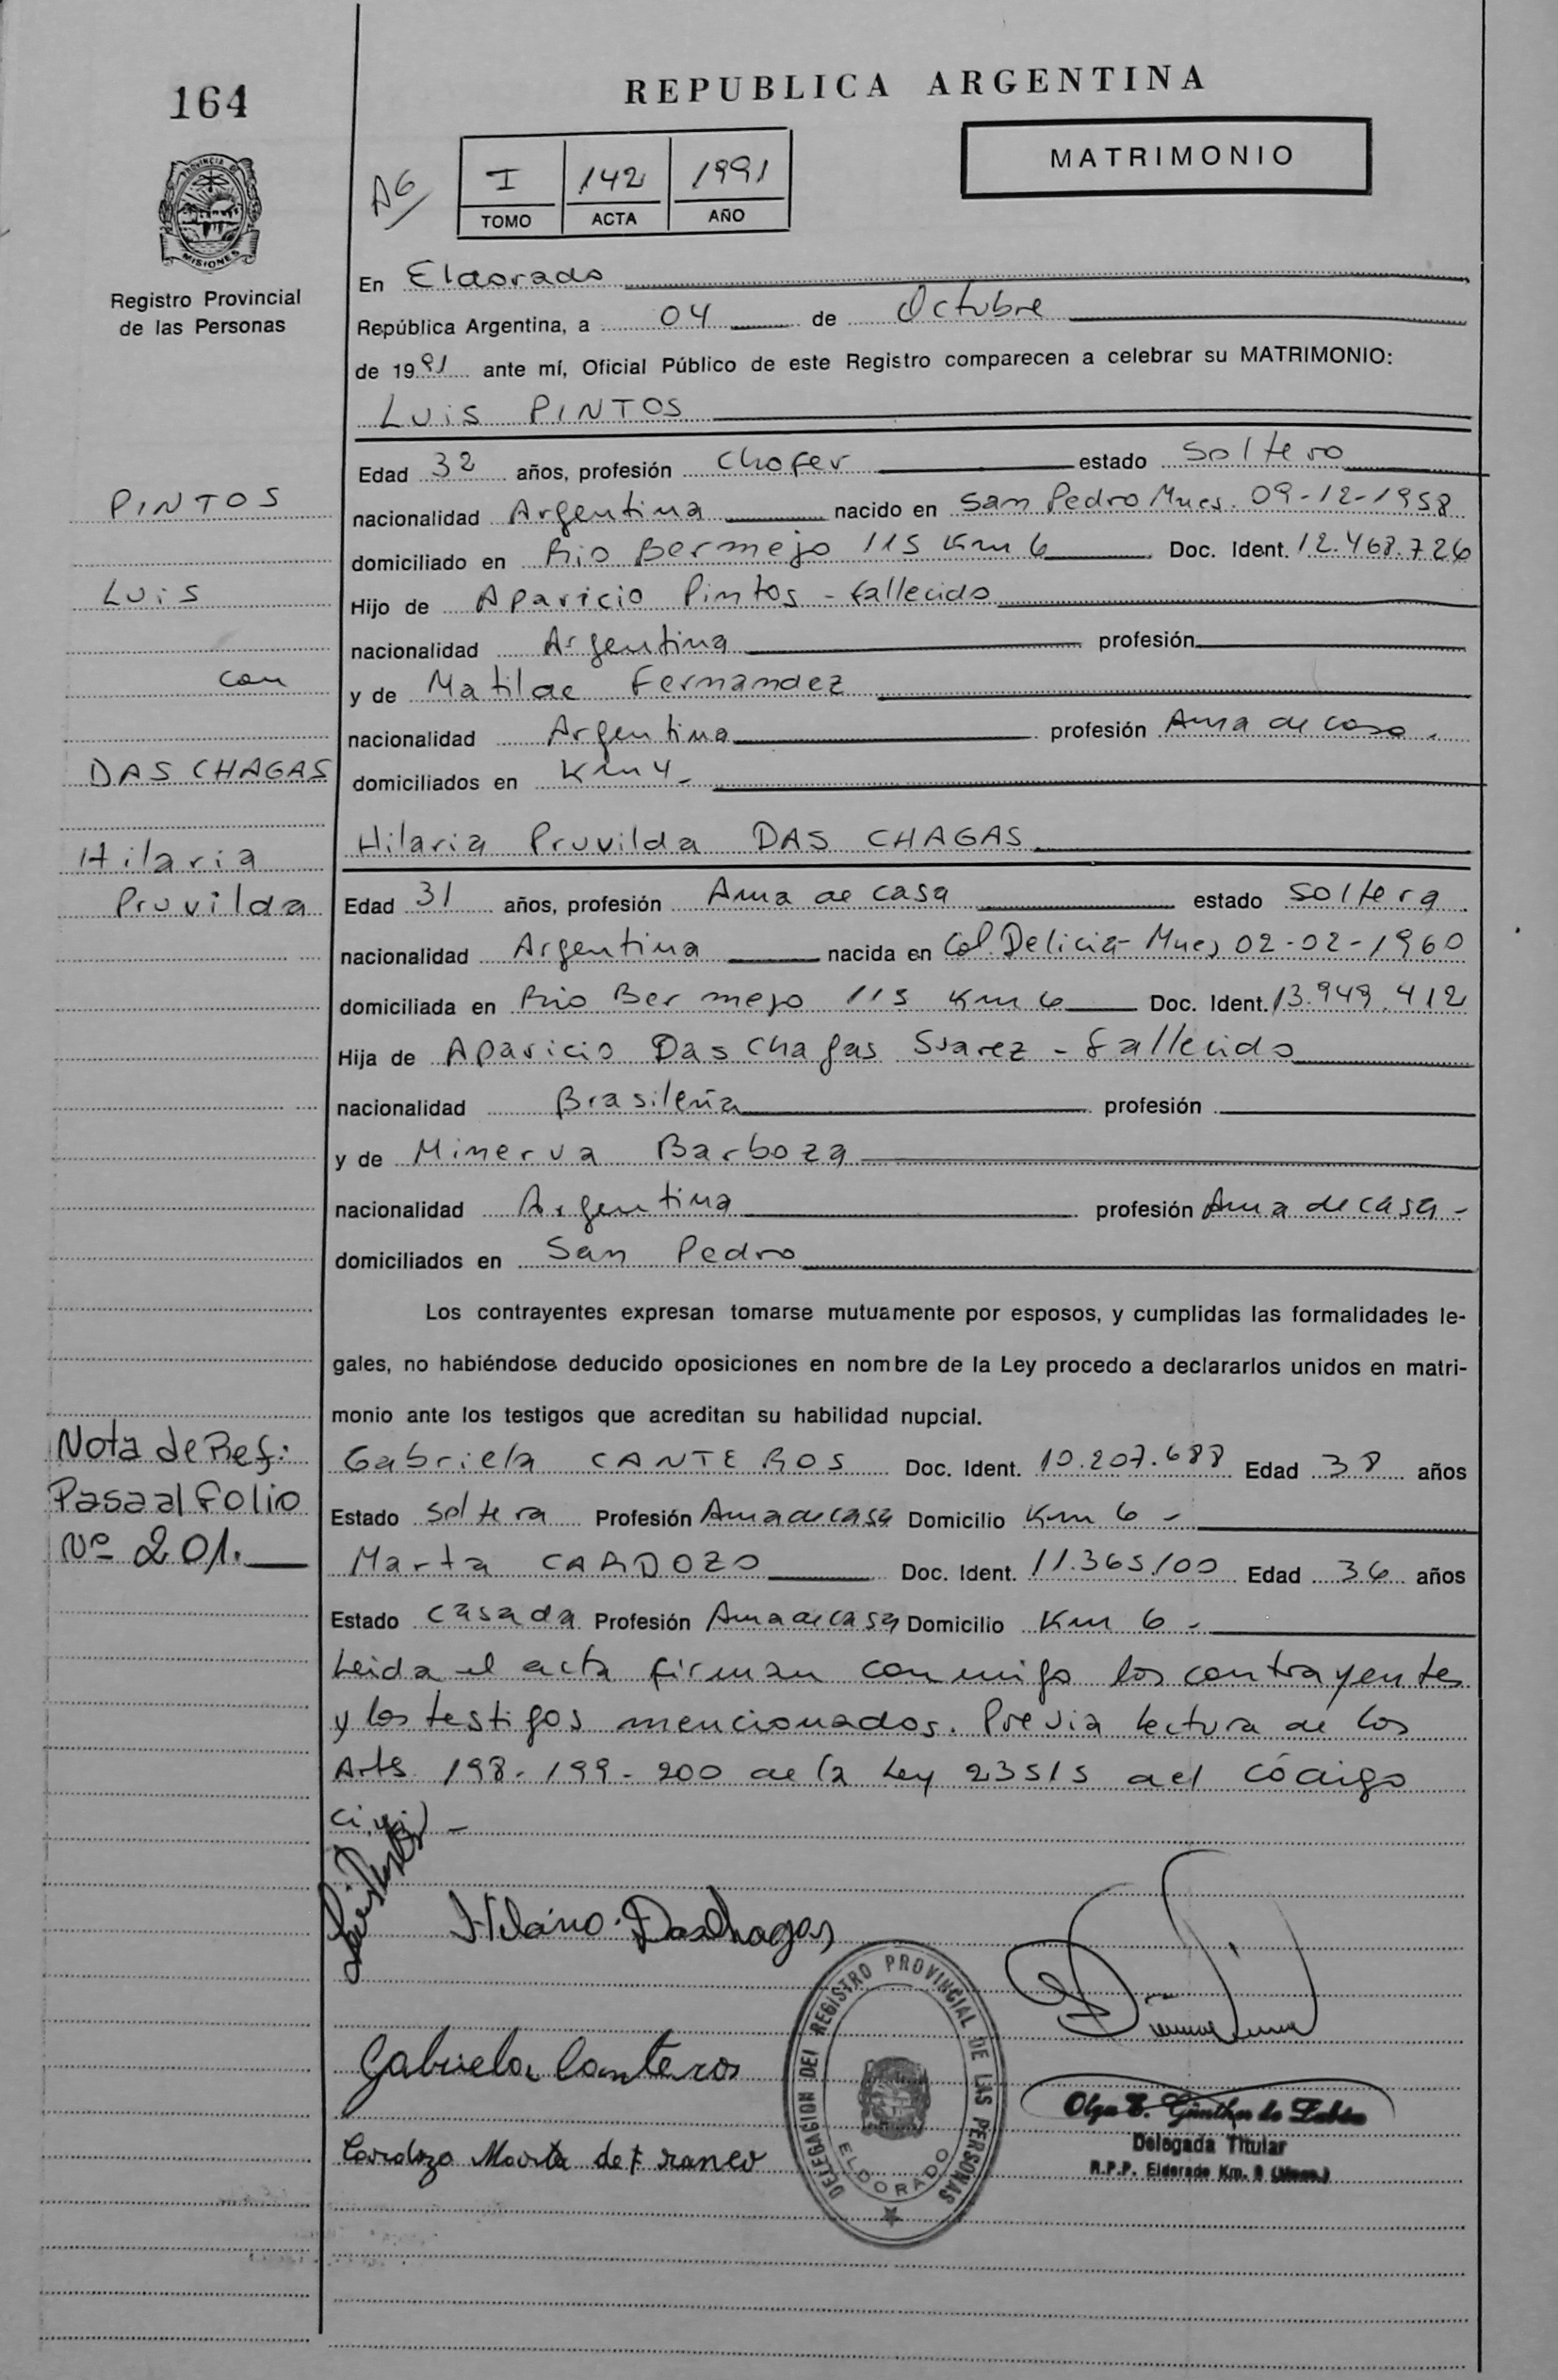 164
REPUBLICA ARGENTINA
MATRIMONIO
AG
I 142 1991
TOMO ACTA AÑO
PROVINCIA DE
MISIONES
Registro Provincial
de las Personas
En Eldorado
República Argentina, a 04 de Octubre
de 1991 ante mí, Oficial Público de este Registro comparecen a celebrar su MATRIMONIO:
Luis PINTOS
Edad 32 años, profesión Chofer estado Soltero
PINTOS
nacionalidad Argentina nacido en San Pedro Mnes. 09-12-1958
domiciliado en Rio Bermejo 115 Km 6 Doc. Ident. 12.468.726
Luis
Hijo de Aparicio Pintos - fallecido
nacionalidad Argentina profesión
con
y de Matilde Fernandez
nacionalidad Argentina profesión Ama de casa.
DAS CHAGAS
domiciliados en Km 4-
Hilaria Pruvilda DAS CHAGAS
Hilaria
Pruvilda
Edad 31 años, profesión Ama de casa estado Soltera
nacionalidad Argentina nacida en Col. Delicia- Mnes 02-02-1960
domiciliada en Rio Bermejo 115 Km 6 Doc. Ident. 13.949.412
Hija de Aparicio Das Chagas Suarez - fallecido
nacionalidad Brasileña profesión
y de Minerva Barboza
nacionalidad Argentina profesión Ama de casa-
domiciliados en San Pedro
Los contrayentes expresan tomarse mutuamente por esposos, y cumplidas las formalidades le-
gales, no habiéndose deducido oposiciones en nombre de la Ley procedo a declararlos unidos en matri-
monio ante los testigos que acreditan su habilidad nupcial.
Nota de Ref:
Pasa al folio
Nº 201.
Gabriela CANTEROS Doc. Ident. 10.207.688 Edad 38 años
Estado Soltera Profesión Ama de casa Domicilio Km 6 -
Marta CARDOZO Doc. Ident. 11.365.100 Edad 36 años
Estado Casada Profesión Ama de casa Domicilio Km 6 -
Leida el acta firman conmigo los contrayentes
y los testigos mencionados. Previa lectura de los
Arts 198-199-200 de la Ley 23515 del código
civil -
Luis Pintos
Hilaria Daschagas
Gabriela Canteros
Cardozo Marta de Franco
DELEGACION DEL REGISTRO PROVINCIAL DE LAS PERSONAS
ELDORADO
Olga E. Günther de
Delegada Titular
R.P.P. Eldorado Km. 9 (Mnes.)